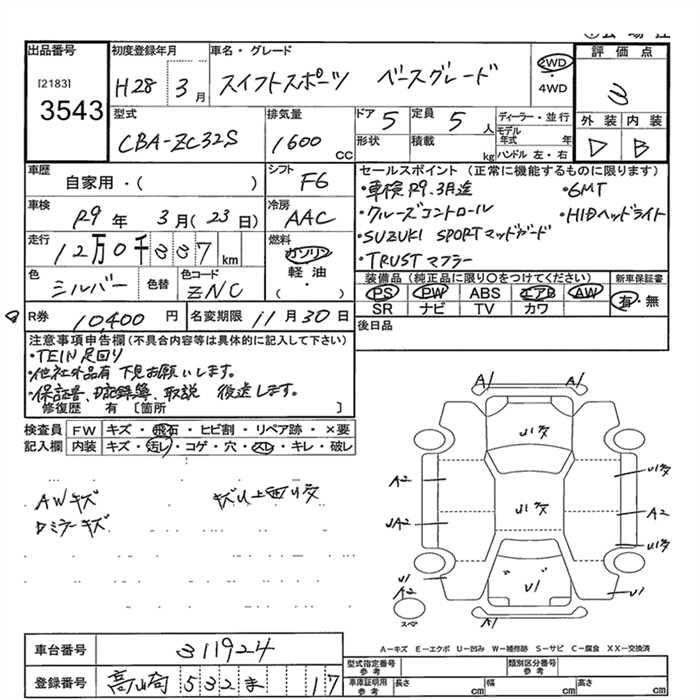 出品番号
[2183]
3543
初度登録年月
H28年3月
車名・グレード
スイフトスポーツ ベースグレード
2WD
・4WD
評価点
3
外装 内装
D B
型式
CBA-ZC32S
排気量
1600 CC
ドア 5
形状
定員 5 人
積載 kg
ディーラー・並行
モデル年式 年
ハンドル 左・右
車歴
自家用・( )
シフト
F6
車検
R9年 3月(23日)
冷房
AAC
走行
12万0千337km
燃料
ガソリン
軽油
( ・ )
色
シルバー
色替
色コード
ZNC
セールスポイント (正常に機能するものに限ります)
・車検R9.3月迄 ・6MT
・クルーズコントロール ・HIDヘッドライト
・SUZUKI SPORTマッドガード
・TRUSTマフラー
装備品(純正品に限り〇をつけてください)
PS PW ABS エアB AW
SR ナビ TV カワ
新車保証書
有・無
R券 10,400円
名変期限 11月30日
後日品
注意事項申告欄(不具合内容等は具体的に記入して下さい)
・TEIN足回り
・他社外品有 下見お願いします。
・保証書、記録簿、取説 後送します。
修復歴 有 〔箇所 〕
検査員記入欄
FW キズ・飛石・ヒビ割・リペア跡・×要
内装 キズ・汚レ・コゲ・穴・スレ・キレ・破レ
AWキズ
ドミラーキズ
A1 A1
U1
A2
U1
A2
U1
U1
U1
A1
スペ
A-キズ E-エクボ U-凹み W-補修跡 S-サビ C-腐食 XX-交換済
車台番号 311924
登録番号 532ま 17
型式指定番号
参考
類別区分番号
参考
車庫証明用
参考
長さ cm 幅 cm 高さ cm